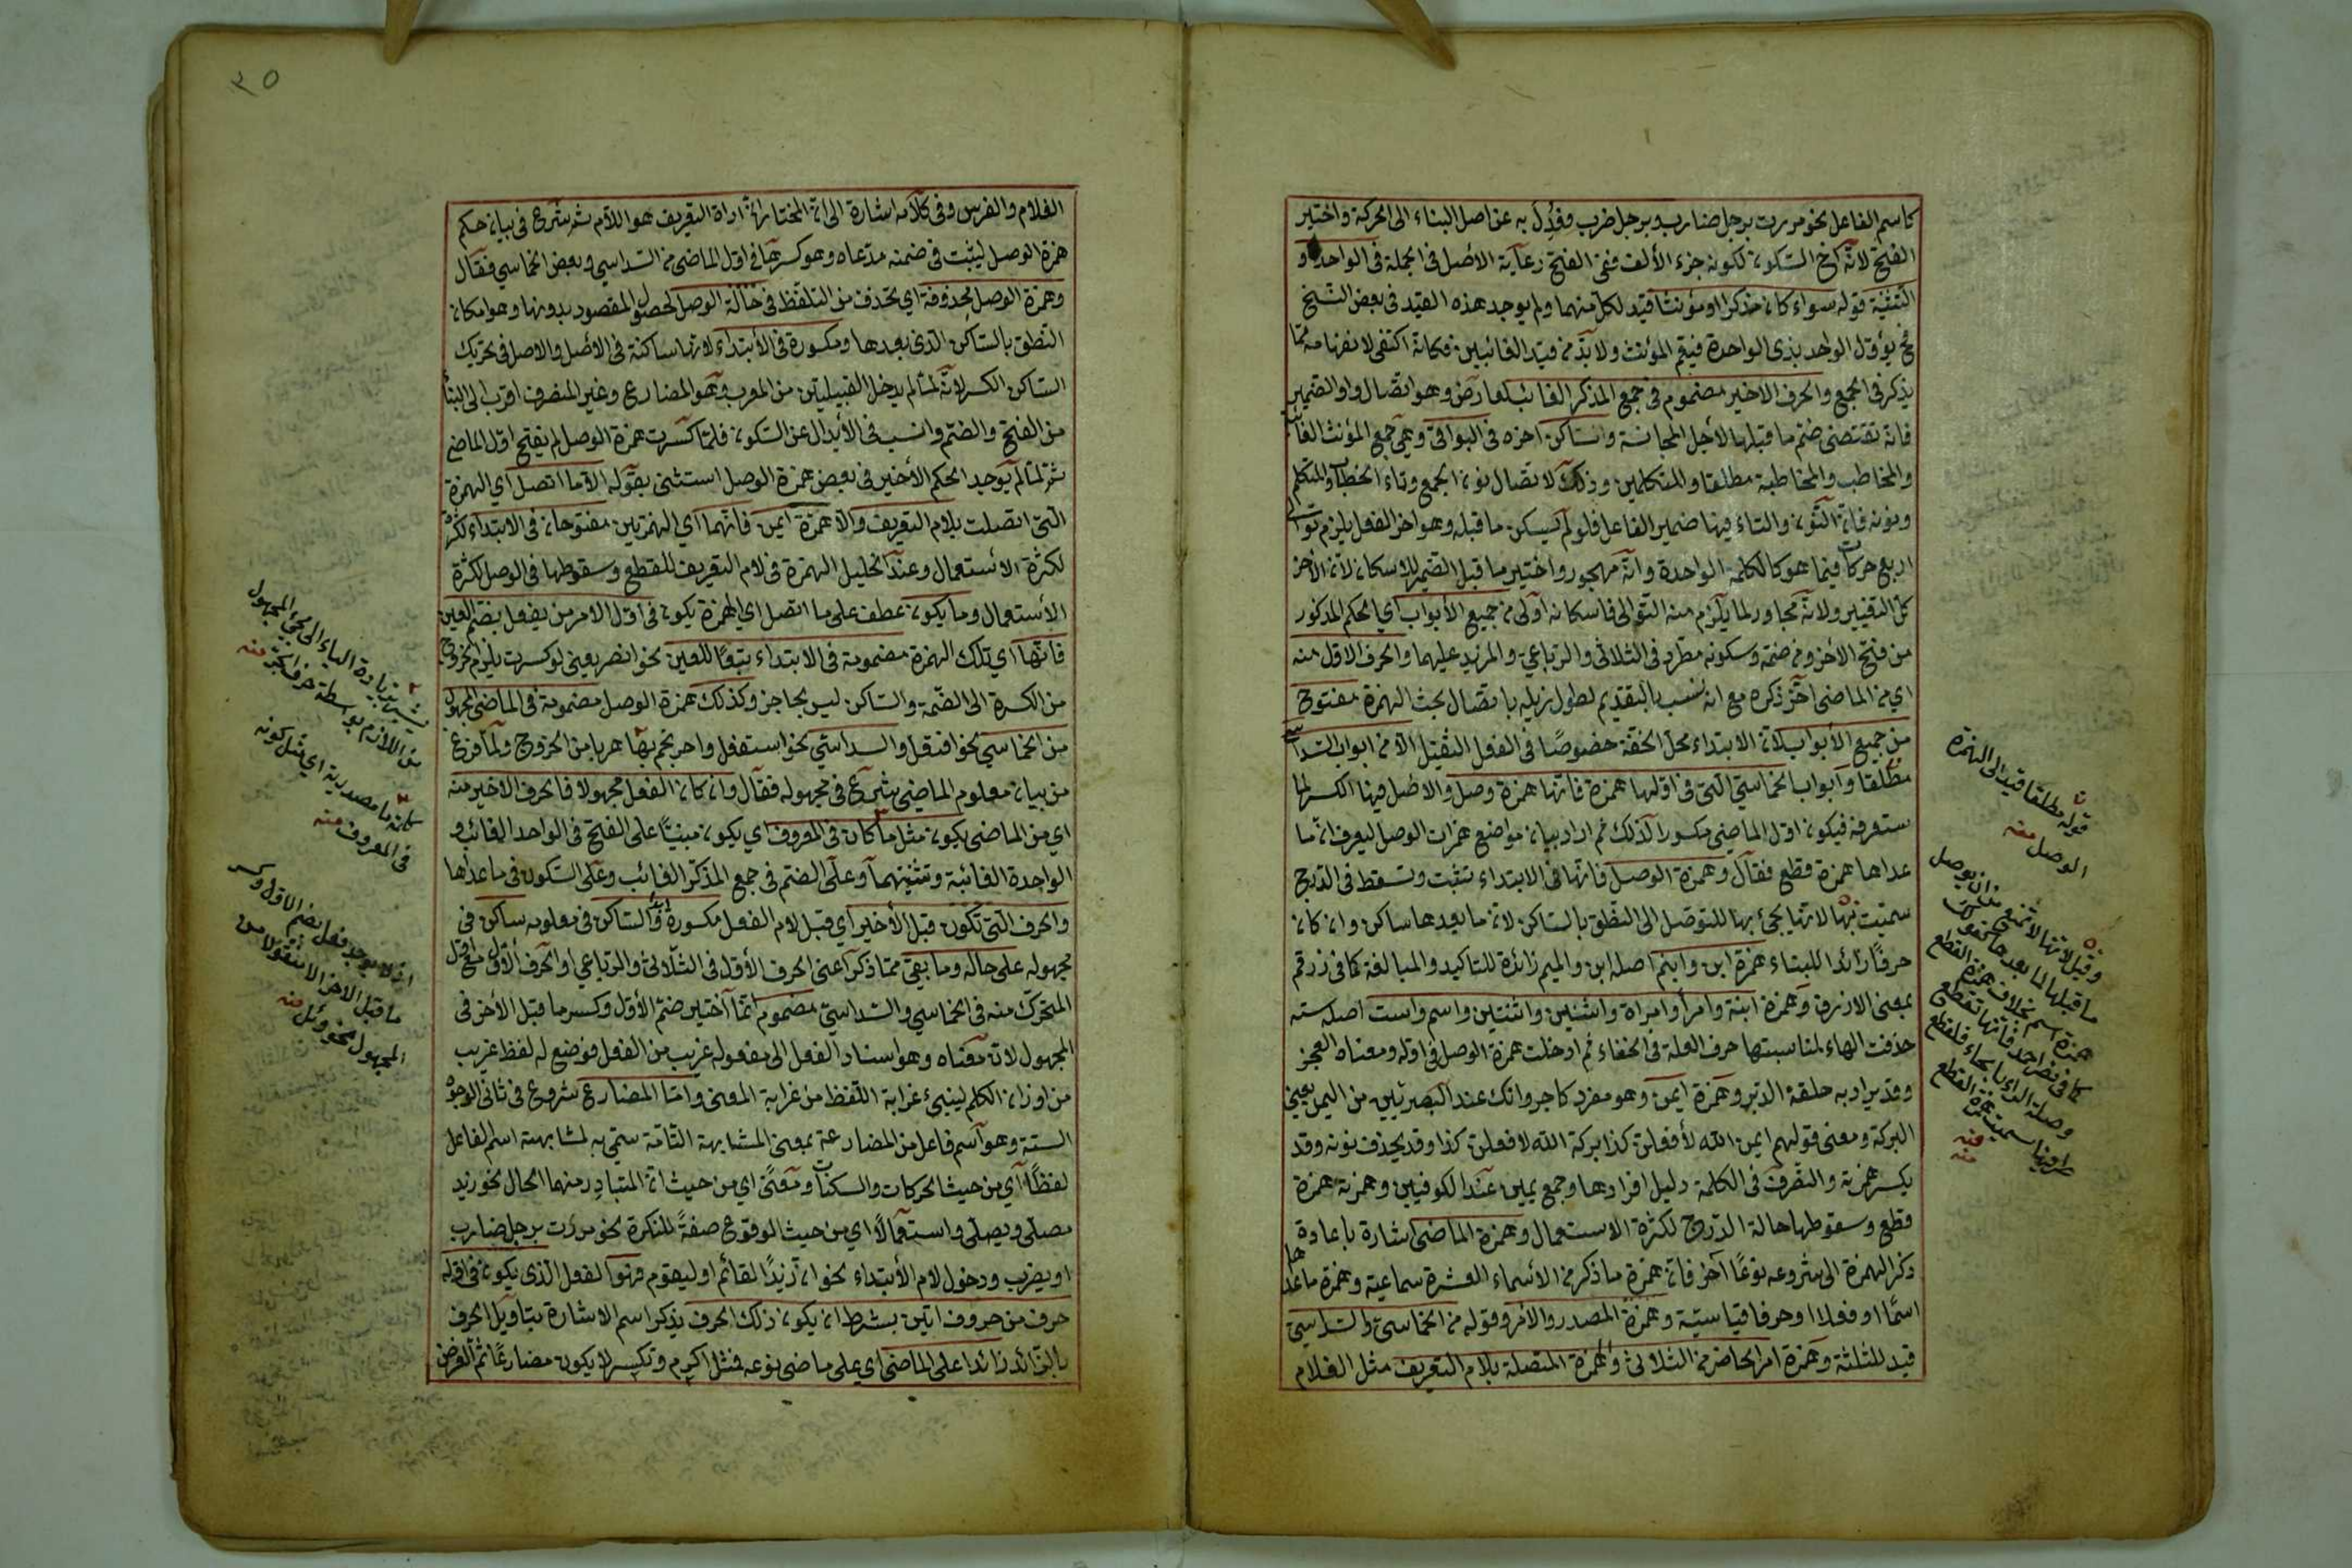 كاسم الفاعل نحو مررت برجل ضارب وبرجل ضرب فعُدِلَ به عن اصل البناء الى الحركة واختير
الفتح لانّه اخ السكون لكونه جزء الألف ففى الفتح رعاية الاصل فى الجملة فى الواحد و
التثنية قوله سواء كان مذكرا او مؤنثا قيد لكل منهما ولم يوجد هذه القيد فى بعض النسخ
فح يؤول الواحد بذى الواحدة فيعم المؤنث ولا بدّ من قيد الغائبين فكانه اكتفى لانفهامه ممّا
يذكر فى الجمع والحرف الاخير مضموم فى جمع المذكر الغائب لعارض وهو اتصال واو الضمير
فانه تقتضى ضم ما قبلها لأجل المجانسة وساكن اخره فى البواقى وهى جمع المؤنث الغائبة
والمخاطب والمخاطبة مطلقا والمتكلمين وذلك لاتصال نون الجمع وتاء الخطاب والمتكلم
ونونه فان النون والتاء فيها ضمير الفاعل فلو لم يسكن ما قبله وهو اخر الفعل يلزم توالى
اربع حركات فيما هو كالكلمة الواحدة وانه مهجور واختير ما قبل الضمير للاسكان لان الأخر
محل التغيير ولانه مجاور لما يلزم منه التوالى فاسكانه اولى من جميع الأبواب اي الحكم المذكور
من فتح الأخر ومن ضمه وسكونه مطرد فى الثلاثى والرباعي والمزيد عليهما والحرف الاول منه
اي من الماضى اخر ذكره مع انه نسب بالتقديم لطول ذيله باتصال بحث الهمزة مفتوح
من جميع الأبواب لان الابتداء محل الخفة خصوصًا فى الفعل الثقيل الا من ابواب السداسي
مطلقا وابواب الخماسي التى فى اولها همزة فانها همزة وصل والاصل فيها الكسر لما
ستعرفه فيكون اول الماضى مكسورا لذلك ثم اراد بيان مواضع همزات الوصل ليعرف ان ما
عداها همزة قطع فقال وهمزة الوصل فانها فى الابتداء تثبت وتسقط فى الدرج
سميت بها لانها يجئ بها للتوصل الى النطق بالساكن لان ما بعدها ساكن وان كان
حرفًا زائدا للبناء همزة ابن وابنم اصله ابن والميم زائدة للتاكيد والمبالغة كما فى زرقم
بمعنى الازرق وهمزة ابنة وامرأ وامراة واثنين واثنتين واسم واست اصله سته
حذفت الهاء لمناسبتها حرف العلة فى الخفاء ثم ادخلت همزة الوصل فى اوله ومعناه العجز
وقد يراد به حلقة الدبر وهمزة ايمن وهو مفرد كاجر وانك عند البصريين من اليمن بمعنى
البركة ومعنى قولهم ايمن الله لأفعلن كذا بركة الله لافعلن كذا وقد يحذف نونه وقد
يكسر همزته والتصرف فى الكلمة دليل افرادها وجمع يمين عند الكوفيين وهمزته همزة
قطع وسقوطها حالة الدرج لكثرة الاستعمال وهمزة الماضى اشارة باعادة
ذكر الهمزة الى شروعه نوعًا آخر فان همزة ما ذكر من الاسماء العشرة سماعية وهمزة ما عداها
اسمًا او فعلا او حرفا قياسيّة وهمزة المصدر والأمر وقوله من الخماسى والسداسىّ
قيد للثلثة وهمزة امر الحاضر من الثلاثى والهمزة المتصلة بلام التعريف مثل الغلام
قوله مطلقا قيد الى الهمزة
الوصل منه
وقيل لانها لا تمنع من ان يوصل
ما قبلها لما بعدها كقولك
همزة اسم بخلاف همزة القطع
كما فى نصر احد فانها تقطع
٣٥
الغلام والفرس وفى كلامه اشارة الى ان المختار ان اداة التعريف هو اللام ثم شرع فى بيان حكم
همزة الوصل ليثبت فى ضمنه مدعاه وهو كسرها فى اول الماضى من السداسي وبعض الخماسي فقال
وهمزة الوصل محذوفة اي تحذف من التلفظ فى حالة الوصل لحصول المقصود بدونها وهو امكان
النطق بالساكن الذى بعدها ومكسورة فى الأبتداء لانها ساكنة فى الاصل والاصل فى تحريك
الساكن الكسر لانّه لما لم يدخل القبيلتين من المعرب وهو المضارع وغير المنصرف اقرب الى البناء
من الفتح والضم وانسب فى الأبدال عن السكون فلمّا كسرت همزة الوصل لم يفتح اول الماضى
ثم لمّا لم يوجد الحكم الأخير فى بعض همزة الوصل استثنى بقوله الا ما اتصل اي الهمزة
التى اتصلت بلام التعريف والا همزة ايمن فانهما اي الهمزتين مفتوحان فى الابتداء لكثرة
لكثرة الأستعمال وعند الخليل الهمزة فى لام التعريف للقطع وسقوطها فى الوصل لكثرة
الأستعمال وما يكون عطف على ما اتصل اي الهمزة يكون فى اول الامر من يفعل بضم العين
فانها اي تلك الهمزة مضمومة فى الابتداء تبعًا للعين نحو انصر يعنى لو كسرت يلزم الخروج
من الكسرة الى الضمة والساكن ليس بحاجز وكذلك همزة الوصل مضمومة فى الماضى المجهول
من الخماسي نحو افتعل والسداسي نحو استفعل واحرنجم بها هربا من الخروج ولما فرغ
من بيان معلوم الماضى شرع فى مجهوله فقال وان كان الفعل مجهولا فالحرف الاخير منه
اي من الماضى يكون مثل ما كان فى المعروف اي يكون مبنيّا على الفتح فى الواحد الغائب و
الواحدة الغائبة وتثنيتهما وعلى الضم فى جمع المذكر الغائب وعلى السكون فى ما عداها
والحرف التى تكون قبل الأخير اي قبل لام الفعل مكسورة والساكن فى معلومه ساكن فى
مجهوله على حاله وما بقي ممّا ذكر اعنى الحرف الأول فى الثلاثى والرباعي او الحرف الأول مع اول
المتحرك منه فى الخماسي والسداسيّ مضموم انما اختير ضم الأول وكسر ما قبل الأخر فى
المجهول لان معناه وهو اسناد الفعل الى مفعوله غريب من الفعل فوضع له لفظ غريب
من اوزان الكلم لينبئ غرابة اللفظ من غرابة المعنى وامّا المضارع شروع فى ثانى الوجوه
الستة وهو اسم فاعل من المضارعة بمعنى المشابهة التامّة سمّى به لمشابهته اسم الفاعل
لفظًا اي من حيث الحركات والسكنات ومعنًى اي من حيث ان المتبادر منهما الحال نحو زيد
مصلّى ويصلّى واستعمالًا اي من حيث الوقوع صفةً للنكرة نحو مررت برجل ضارب
او يضرب ودخول لام الأبتداء نحو ان زيدًا لقائم او ليقوم فهو الفعل الذى يكون فى اوله
حرف من حروف اتين بشرط ان يكون ذلك الحرف يذكر اسم الاشارة بتاويل الحرف
بالزائد زائدا على الماضى اي على ماضى نوعه فمثل اكرم وتكسر لا يكون مضارعًا ثم الغرض
يشير بزيادة الياء الى مجئ المجهول
من اللازم بواسطة حرف الجر منه
كلمة ما مصدرية اي مثل كونه
فى المعروف منه
اذ لا يوجد فعل بضم الاول وكسر
ما قبل الاخر الا منقولا من
المجهول نحو وئل منه